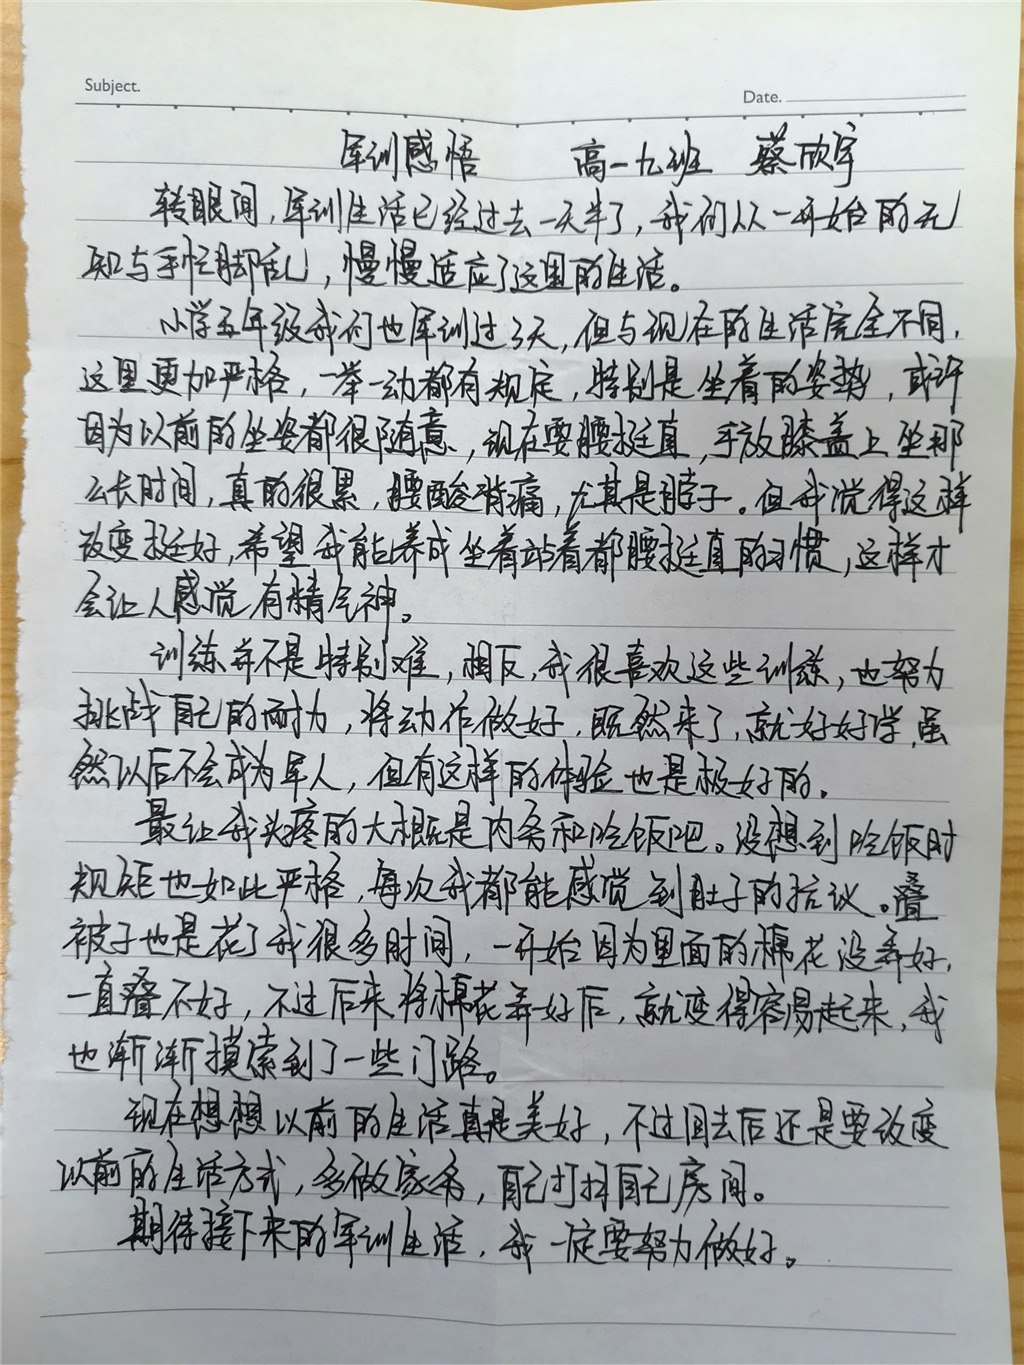 Subject.
Date.
军训感悟 高一九班 蔡欣宇
转眼间,军训生活已经过去一天半了,我们从一开始的无
知与手忙脚乱,慢慢适应了这里的生活。
小学五年级我们也军训过3天,但与现在的生活完全不同,
这里更加严格,一举一动都有规定,特别是坐着的姿势,或许
因为以前的坐姿都很随意,现在要腰挺直,手放膝盖上坐那
么长时间,真的很累,腰酸背痛,尤其是脖子。但我觉得这样
改变挺好,希望我能养成坐着站着都腰挺直的习惯,这样才
会让人感觉有精气神。
训练并不是特别难,相反,我很喜欢这些训练,也努力
挑战自己的耐力,将动作做好,既然来了,就好好学,虽
然以后不会成为军人,但有这样的体验也是极好的。
最让我头疼的大概是内务和吃饭吧。没想到吃饭时
规矩也如此严格,每次我都能感觉到肚子的抗议。叠
被子也是花了我很多时间,一开始因为里面的棉花没弄好,
一直叠不好,不过后来将棉花弄好后,就变得容易起来,我
也渐渐摸索到了一些门路。
现在想想以前的生活真是美好,不过回去后还是要改变
以前的生活方式,多做家务,自己打扫自己房间。
期待接下来的军训生活,我一定要努力做好。